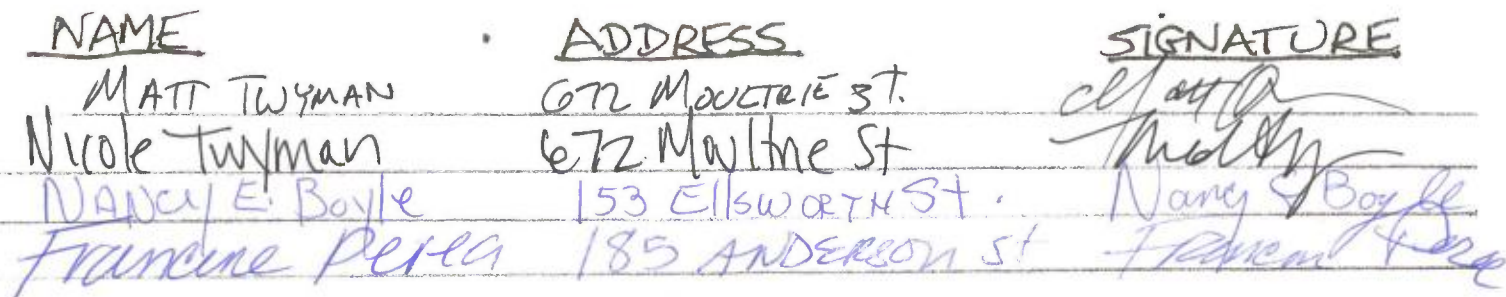 NAME ADDRESS SIGNATURE
MATT TWYMAN 672 MOULTRIE ST.
Nicole Twyman 672 Moultrie St
NANCY E. Boyle 153 EllswORTH St. Nancy E Boyle
Francine Perea 185 ANDERSON St Francine Perea